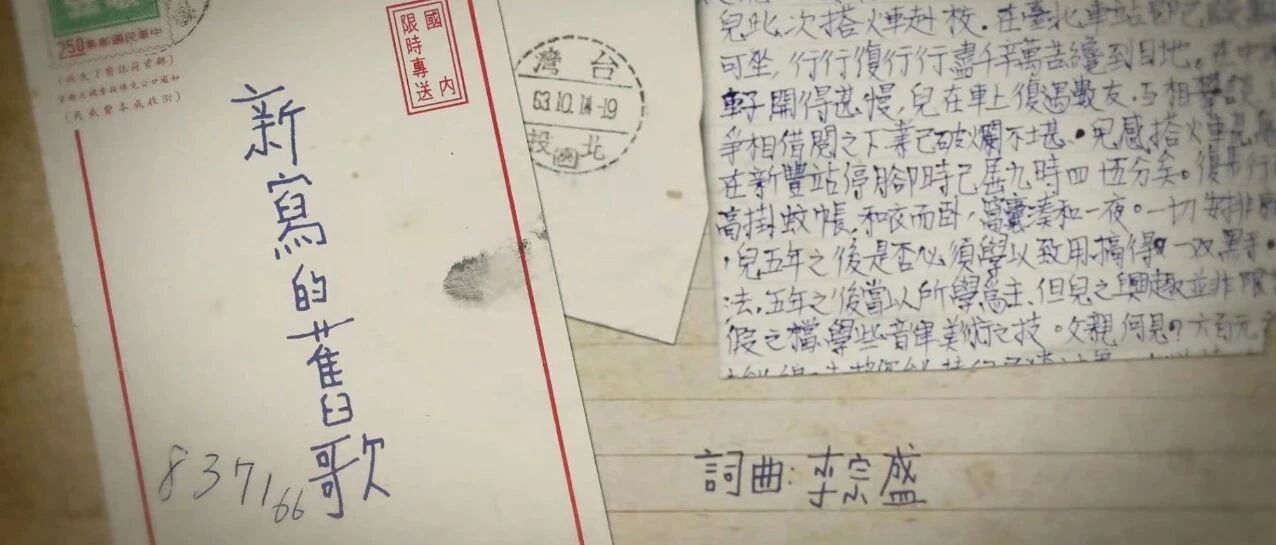 中華民國郵票
250
國內
限時專送
新寫的舊歌
837166
台灣
63.10.14-19
北投
兒此次搭火車赴校．在臺北車站即已
可坐，行行復行行盡千辛萬苦纔到目地。在中
車子開得甚慢，兒在車上復遇數友．互相
爭相借閱之下業已破爛不堪．兒感搭火車
在新豐站停腳時已居九時四十五分矣。復步行
高掛蚊帳，和衣而卧，窩囊湊和一夜。一切安排非
．兒五年之後是否必須學以致用搞得一双黑手．
法，五年之後當以所學為主．但兒之興趣並非限
假之檔學些音律美術之技。父親何見？六百元
詞曲:李宗盛